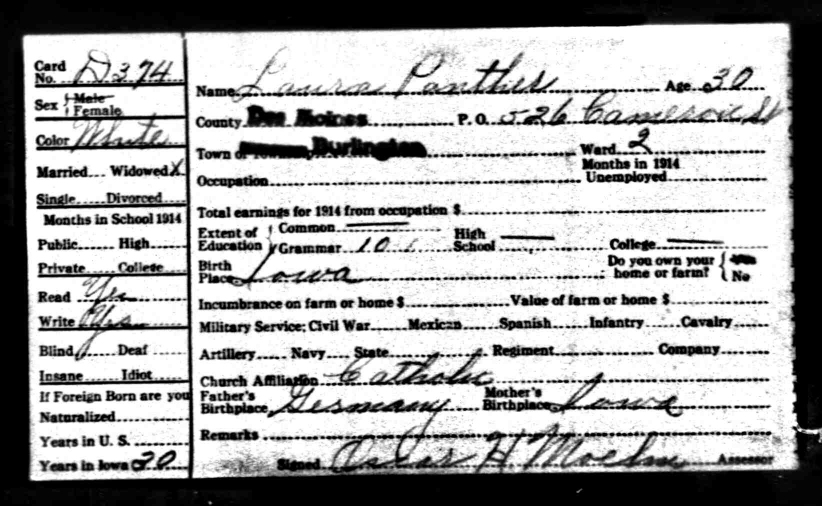 Card No. D374
Sex Male Female
Color White
Married Widowed X
Single Divorced
Months in School 1914
Public High
Private College
Read Yes
Write Yes
Blind Deaf
Insane Idiot
If Foreign Born are you
Naturalized
Years in U. S.
Years in Iowa 30
Name Laura Panther Age 30
County Des Moines P. O. 526 Cameron St
Town or Burlington Ward 2
Occupation Months in 1914 Unemployed
Total earnings for 1914 from occupation $
Extent of Education Common High School College
Grammar 10
Birth Place Iowa Do you own your home or farm? No
Incumbrance on farm or home $ Value of farm or home $
Military Service: Civil War Mexican Spanish Infantry Cavalry
Artillery Navy State Regiment Company
Church Affiliation Catholic
Father's Birthplace Germany Mother's Birthplace Iowa
Remarks
Signed Oscar H Assessor